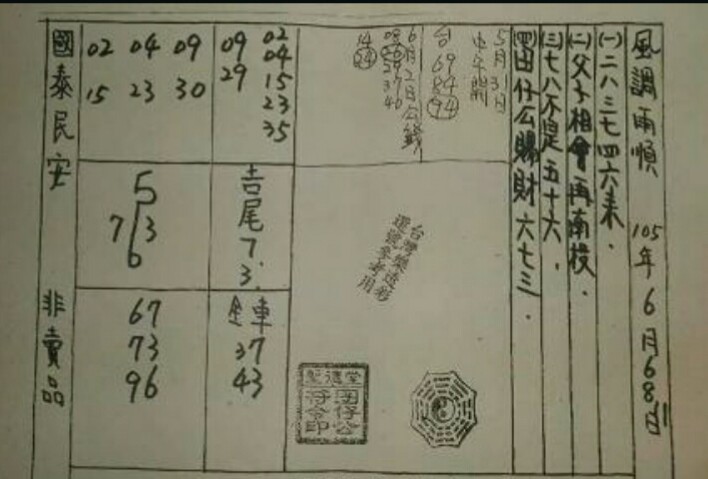 風調雨順 105年6月6 8 11日
(一)二八三七四六來.
(二)父子相會再南枝.
(三)七八不是五十六.
(四)囝仔公賜財六七三.
5月31日
中午開
台 69 84 94
6月2日公錢
08 26 29 37 40
14 24
02 04 15 23 35
09 29
09 30
04 23
02 15
吉尾 7. 3.
5
7 3
6
台灣樂透彩
選號參考用
全車 37 43
67
73
96
聖德堂
囝仔公
符令印
國泰民安 非賣品